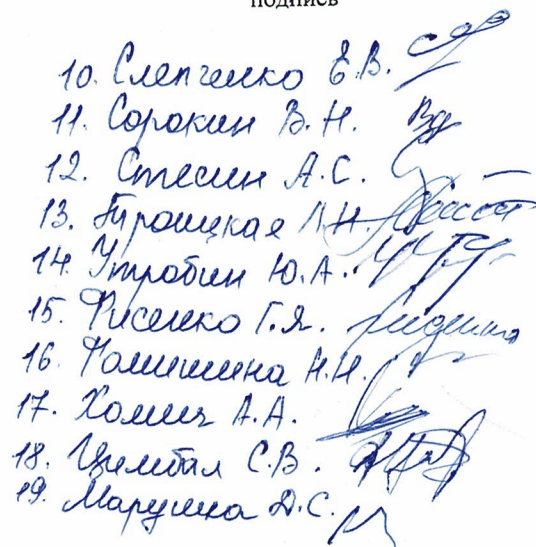 подпись
10. Слепченко Е.В.
11. Сорокин В.Н.
12. Стесин А.С.
13. Троицкая Л.Н.
14. Утробин Ю.А.
15. Фисенко Г.Я.
16. Фомишина Н.Н.
17. Хомич А.А.
18. Цимбал С.В.
19. Марушка Д.С.